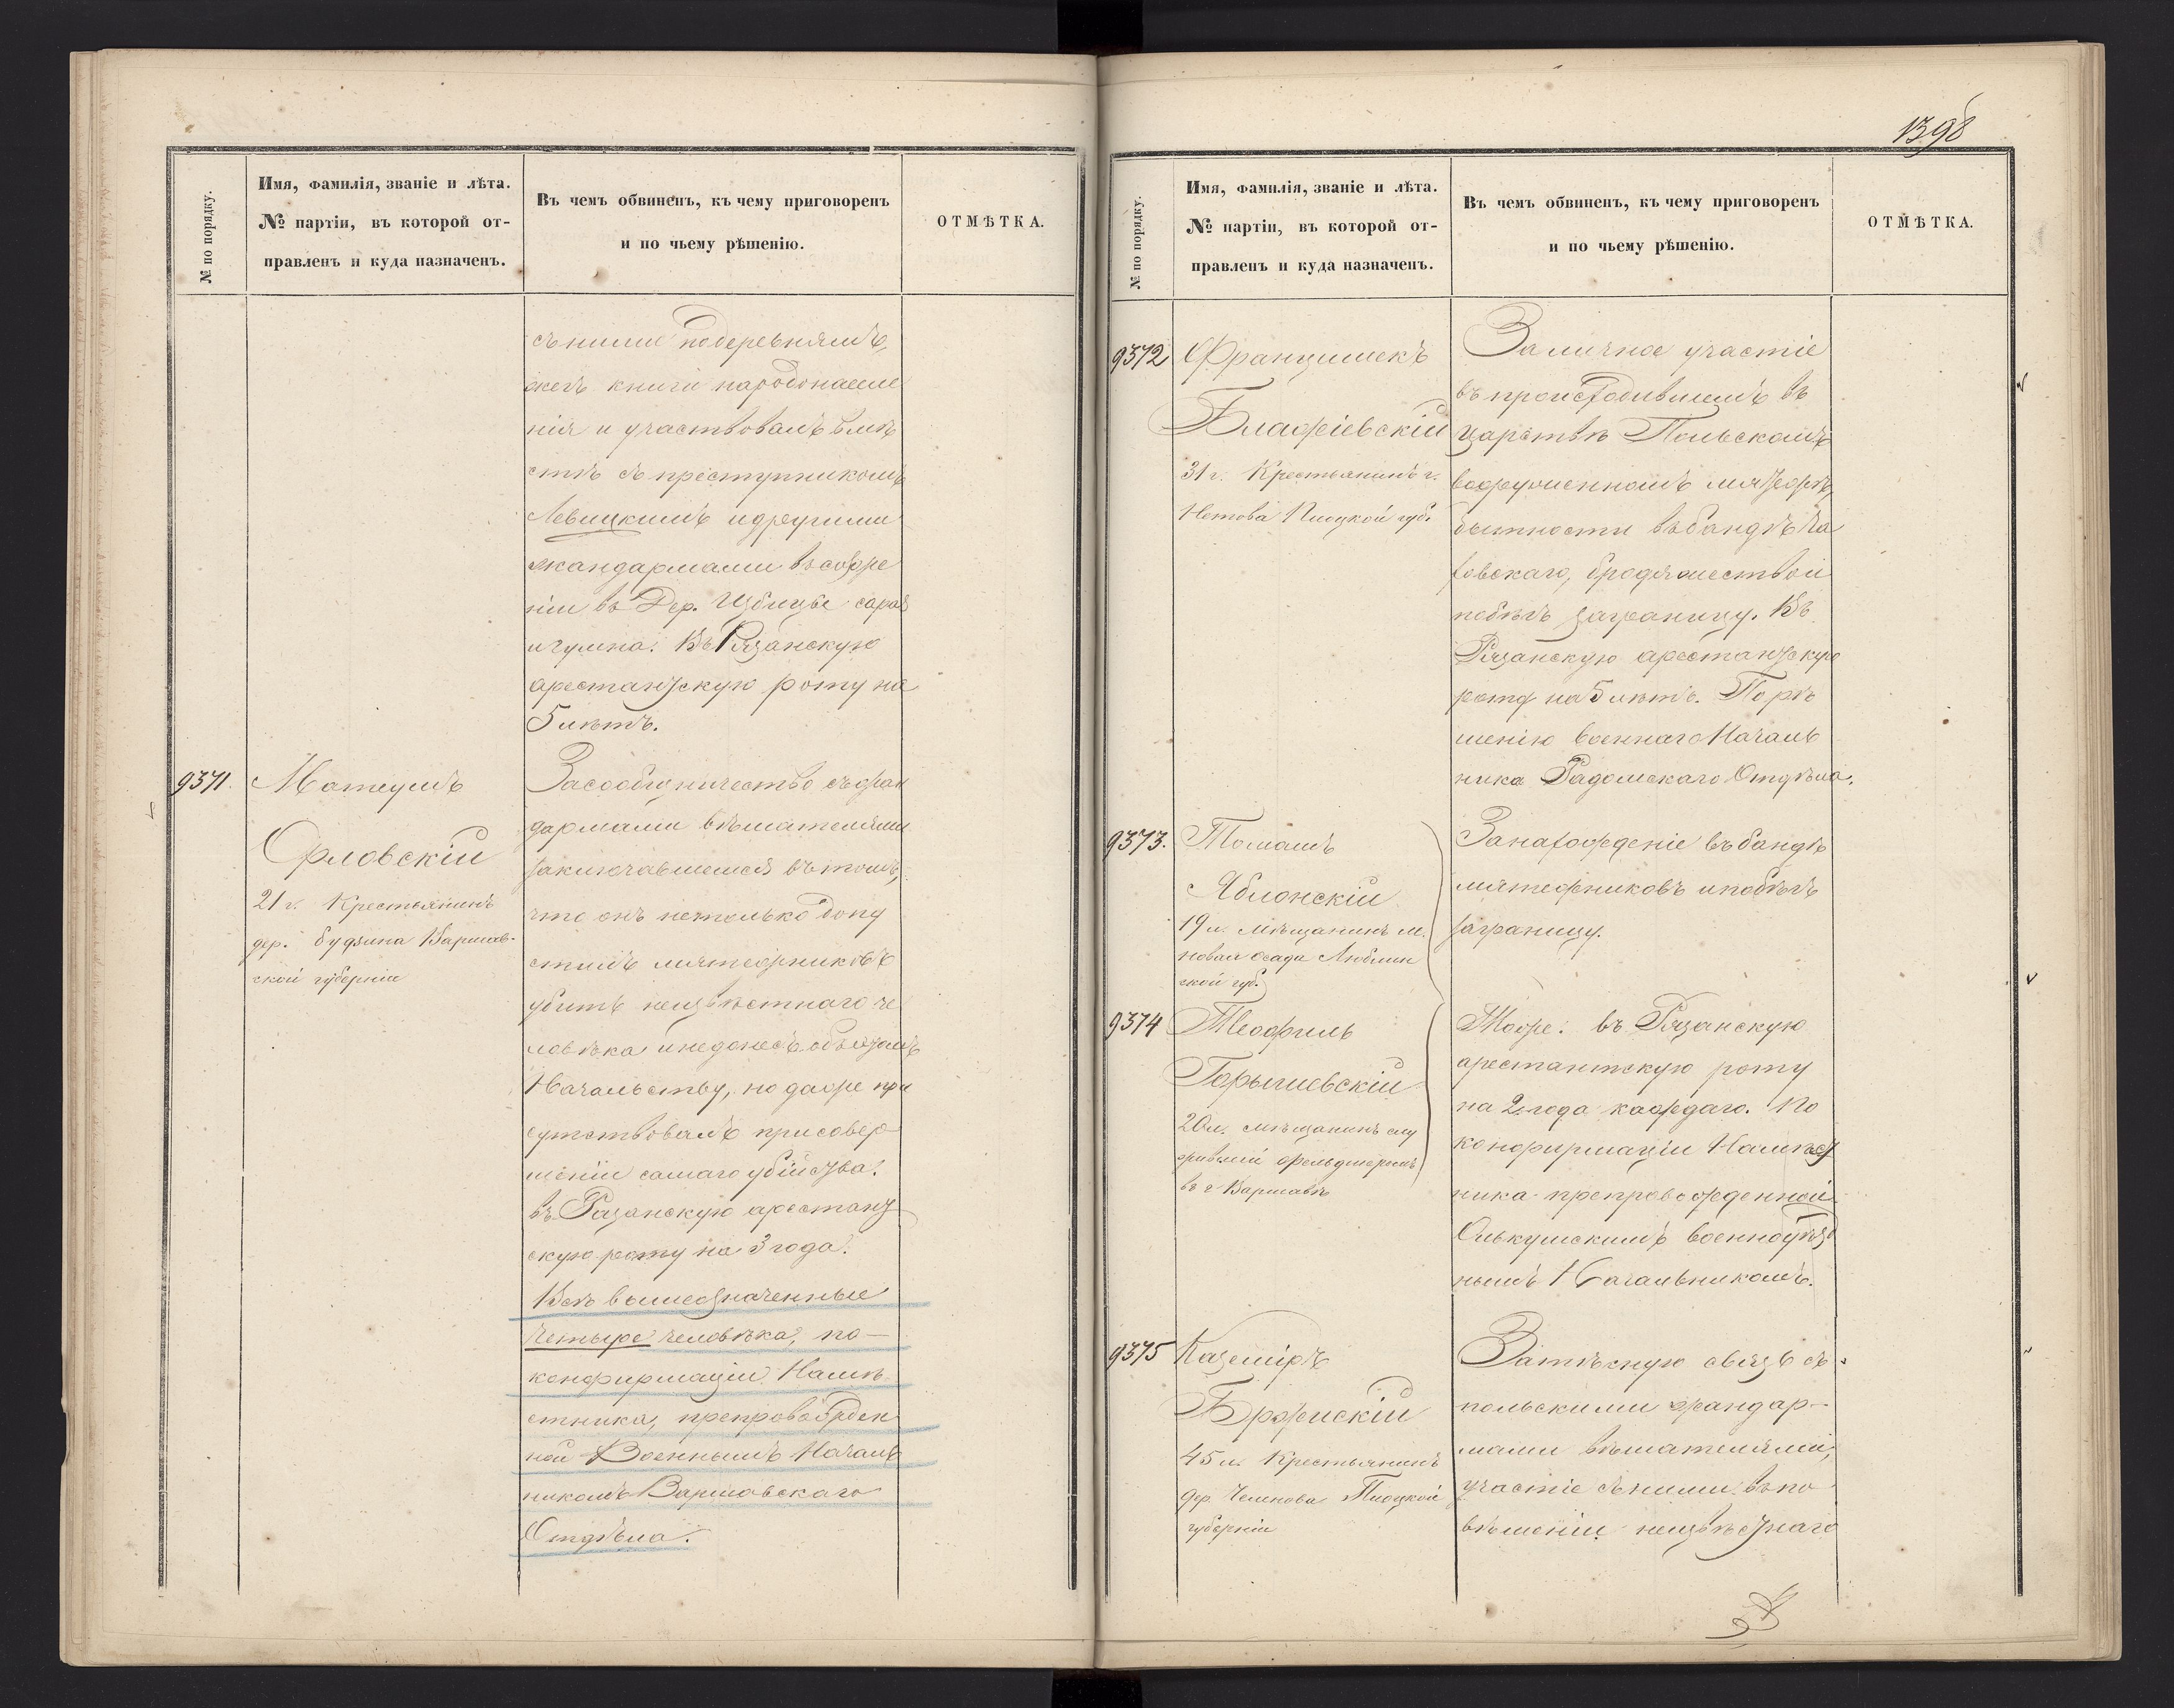 1398
№ по порядку.
Имя, фамилія, званіе и лѣта.
№ партіи, въ которой от-
правленъ и куда назначенъ.
Въ чемъ обвиненъ, къ чему приговоренъ
и по чьему рѣшенію.
ОТМѢТКА.
съ ними по деревнямъ,
жегъ книги народонаселе
нія и участвовалъ вмѣ
стѣ съ преступникомъ
Левицкимъ и другими
жандармами въ сожже
ніи въ Дер. Избицѣ сарая
и гумна. Въ Рязанскую
арестантскую роту на
5 лѣтъ.
9371.
Матеушъ
Орловскій
21 г. Крестьянинъ
дер. Будзина Варшав-
ской губерніи
За сообщничество съ жан
дармами вѣшателями
заключавшемся въ томъ,
что онъ не только допу
стилъ мятежниковъ
убить неизвѣстнаго че
ловѣка и не донесъ объ этомъ
Начальству, но даже при
сутствовалъ при совер
шеніи самаго убійства.
въ Рязанскую арестант
скую роту на 3 года.
Всѣ вышеозначенные
четыре человѣка, по
конфирмаціи Намѣ
стника, препровожден
ной Военнымъ Началь
никомъ Варшавскаго
Отдѣла.
№ по порядку.
Имя, фамилія, званіе и лѣта.
№ партіи, въ которой от-
правленъ и куда назначенъ.
Въ чемъ обвиненъ, къ чему приговоренъ
и по чьему рѣшенію.
ОТМѢТКА.
9372
Францишекъ
Блажіевскій
31 г. Крестьянинъ г.
Плоцкой губ.
За личное участіе
въ происходившемъ въ
царствѣ Польскомъ
вооруженномъ мятежѣ,
бытности въ бандѣ Ча
ховскаго, бродяжество и
побѣгъ заграницу. Въ
Рязанскую арестантскую
роту на 5 лѣтъ. По рѣ
шенію военнаго Началь
ника Радомскаго Отдѣла.
9373.
Томашъ
Яблонскій
19 л. Мѣщанинъ м.
новая осада Люблин
ской губ.
За нахожденіе въ бандѣ
мятежниковъ и побѣгъ
заграницу.
9374
Теофиль
Горычевскій
20 л. мѣщанинъ слу
жившій фельдшеромъ
въ г. Варшавѣ
Тоже. въ Рязанскую
арестантскую роту
на 2 года каждаго. По
конфирмаціи Намѣст
ника препровожденной
Олькушскимъ военноуѣзд
нымъ Начальникомъ.
9375
Каземіръ
45 л. Крестьянинъ
дер. Плоцкой
губерніи
За тѣсную связь съ
польскими жандар-
мами вѣшателями,
участіе съ ними въ по
вѣшеніи неизвѣстнаго